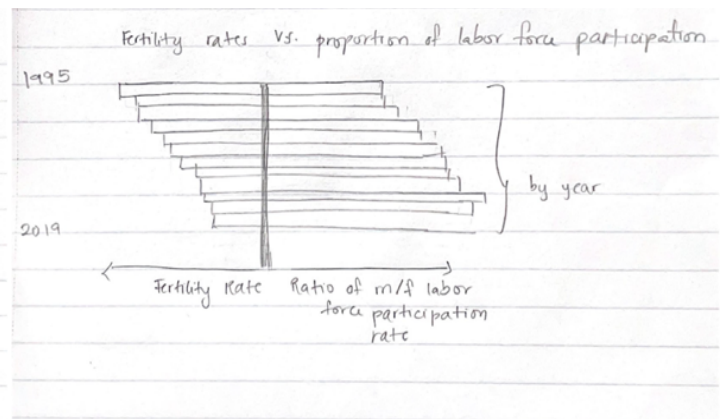 Fertility rates Vs. proportion of labor force participation
1995
by year
2019
Fertility Rate
Ratio of m/f labor
force participation
rate